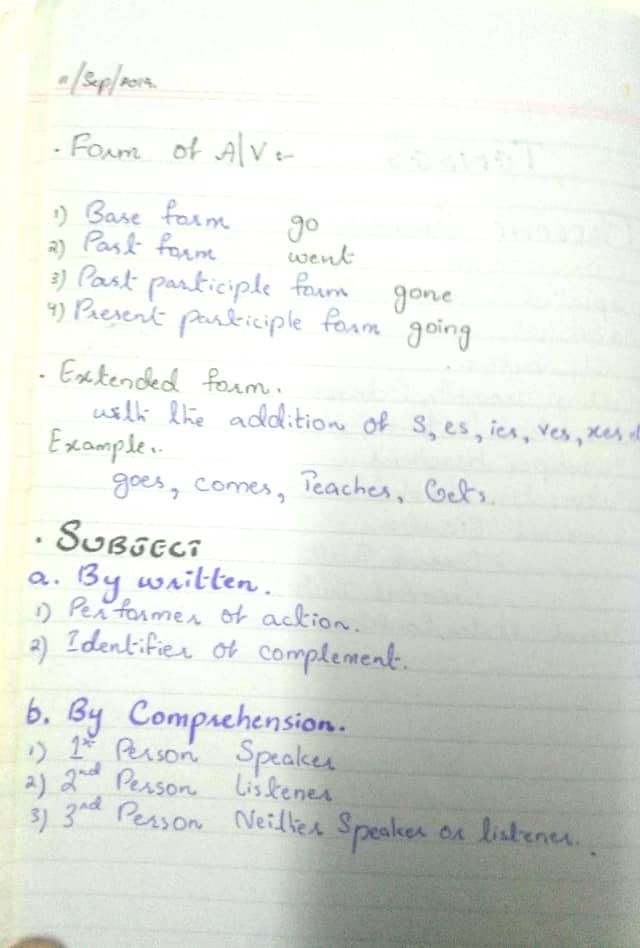 /Sep/2019.
. Form of A|V :-
1) Base form go
2) Past form went
3) Past participle form gone
4) Present participle form going
. Extended form.
with the addition of S, es, ies, ves, xes
Example..
goes, comes, Teaches, Gets.
. SUBJECT
a. By written.
1) Performer of action.
2) Identifier of complement.
b. By Comprehension.
1) 1st Person Speaker
2) 2nd Person Listener
3) 3nd Person Neither Speaker or listener.